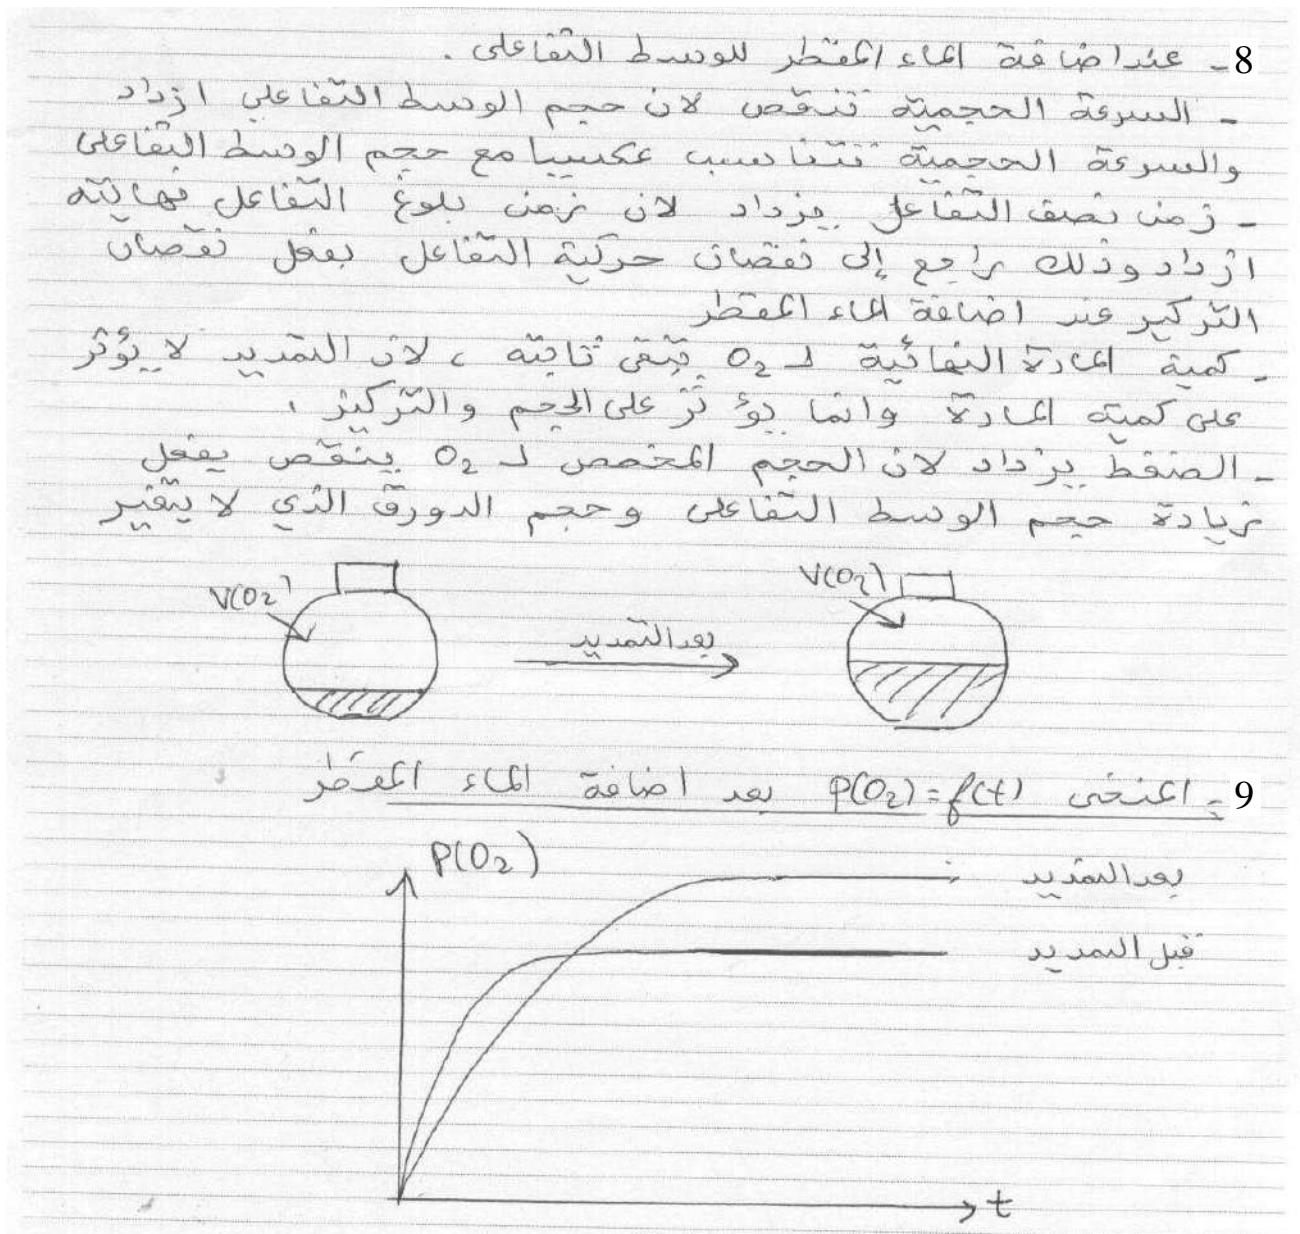 8- عند اضافة الماء المقطر للوسط التفاعلي .
- السرعة الحجمية تنقص لان حجم الوسط التفاعلي ازداد
والسرعة الحجمية تتناسب عكسيا مع حجم الوسط التفاعلي
- زمن نصف التفاعل يزداد لان زمن بلوغ التفاعل نهايته
ازداد وذلك راجع إلى نقصان حركية التفاعل بفعل نقصان
التركيز عند اضافة الماء المقطر
- كمية المادة النهائية لـ O2 تبقى ثابتة ، لان التمديد لا يؤثر
على كمية المادة وانما يؤثر على الحجم والتركيز .
- الضغط يزداد لان الحجم المخصص لـ O2 ينقص بفعل
زيادة حجم الوسط التفاعلي وحجم الدورق الذي لا يتغير
V(O2)
بعد التمديد
V(O2)
9- المنحنى P(O2)=f(t) بعد اضافة الماء المقطر
P(O2)
بعد التمديد
قبل التمديد
t